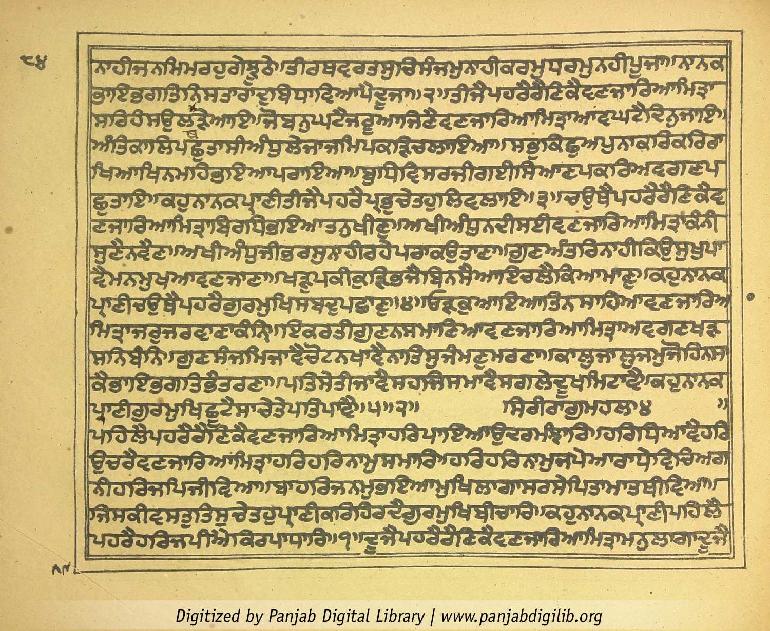 ੮੪
ਨਾਹੀਜਨਮਿਮਰਹੁਗੇਝੂਠੇ॥ਤੀਰਥਵਰਤਸੁਚਿਸੰਜਮੁਨਾਹੀਕਰਮੁਧਰਮੁਨਹੀਪੂਜਾ॥ਨਾਨਕ
ਭਾਇਭਗਤਿਨਿਸਤਾਰਾਦੁਬਿਧਾਵਿਆਪੈਦੂਜਾ॥੨॥ਤੀਜੈਪਹਰੈਰੈਣਿਕੈਵਣਜਾਰਿਆਮਿਤ੍ਰਾ
ਸਰਿਹੰਸਉਲਥੜੇਆਇ॥ਜੋਬਨੁਘਟੈਜਰੂਆਜਿਣੈਵਣਜਾਰਿਆਮਿਤ੍ਰਾਆਵਘਟੈਦਿਨੁਜਾਇ॥
ਅੰਤਿਕਾਲਿਪਛੁਤਾਸੀਅੰਧੁਲੇਜਾਜਮਿਪਕੜਿਚਲਾਇਆ॥ਸਭੁਕਿਛੁਅਪੁਨਾਕਰਿਕਰਿਰਾ
ਖਿਆਖਿਨਮਹਿਭਇਆਪਰਾਇਆ॥ਬੁਧਿਵਿਸਰਜੀਗਈਸਿਆਣਪਕਰਿਅਵਗਣਪ
ਛੁਤਾਇ॥ਕਹੁਨਾਨਕਪ੍ਰਾਣੀਤੀਜੈਪਹਰੈਪ੍ਰਭੁਚੇਤਹੁਲਿਵਲਾਇ॥੩॥ਚਉਥੈਪਹਰੈਰੈਣਿਕੈਵ
ਣਜਾਰਿਆਮਿਤ੍ਰਾਬਿਰਧਿਭਇਆਤਨੁਖੀਣੁ॥ਅਖੀਅੰਧੁਨਦੀਸਈਵਣਜਾਰਿਆਮਿਤ੍ਰਾਕੰਨੀ
ਸੁਣੈਨਵੈਣ॥ਅਖੀਅੰਧੁਜੀਭਰਸੁਨਾਹੀਰਹੇਪਰਾਕਉਤਾਣਾ॥ਗੁਣਅੰਤਰਿਨਾਹੀਕਿਉਸੁਖੁਪਾ
ਵੈਮਨਮੁਖਆਵਣਜਾਣਾ॥ਖੜੁਪਕੀਕੁੜਿਭਜੈਬਿਨਸੈਆਇਚਲੈਕਿਆਮਾਣੁ॥ਕਹੁਨਾਨਕ
ਪ੍ਰਾਣੀਚਉਥੈਪਹਰੈਗੁਰਮੁਖਿਸਬਦੁਪਛਾਣੁ॥੪॥ਓੜਕੁਆਇਆਤਿਨਸਾਹਿਆਵਣਜਾਰਿਆ
ਮਿਤ੍ਰਾਜਰੁਜਰਵਾਣਾਕੰਨਿ॥ਇਕਰਤੀਗੁਣਨਸਮਾਣਿਆਵਣਜਾਰਿਆਮਿਤ੍ਰਾਅਵਗਣਖੜ
ਸਨਿਬੰਨਿ॥ਗੁਣਸੰਜਮਿਜਾਵੈਚੋਟਨਖਾਵੈਨਾਤਿਸੁਜੰਮਣੁਮਰਣਾ॥ਕਾਲੁਜਾਲੁਜਮੁਜੋਹਿਨਸਾ
ਕੈਭਾਇਭਗਤਿਭੈਤਰਣਾ॥ਪਤਿਸੇਤੀਜਾਵੈਸਹਜਿਸਮਾਵੈਸਗਲੇਦੂਖਮਿਟਾਵੈ॥ਕਹੁਨਾਨਕ
ਪ੍ਰਾਣੀਗੁਰਮੁਖਿਛੂਟੈਸਾਚੇਤੇਪਤਿਪਾਵੈ॥੫॥੨॥ ਸਿਰੀਰਾਗੁਮਹਲਾ੪॥
ਪਹਿਲੈਪਹਰੈਰੈਣਿਕੈਵਣਜਾਰਿਆਮਿਤ੍ਰਾਹਰਿਪਾਇਆਉਦਰਮੰਝਾਰਿ॥ਹਰਿਧਿਆਵੈਹਰਿ
ਉਚਰੈਵਣਜਾਰਿਆਮਿਤ੍ਰਾਹਰਿਹਰਿਨਾਮੁਸਮਾਰਿ॥ਹਰਿਹਰਿਨਾਮੁਜਪੇਆਰਾਧੇਵਿਚਿਅਗ
ਨੀਹਰਿਜਪਿਜੀਵਿਆ॥ਬਾਹਰਿਜਨਮੁਭਇਆਮੁਖਿਲਾਗਾਸਰਸੇਪਿਤਾਮਾਤਥੀਵਿਆ॥
ਜਿਸਕੀਵਸਤੁਤਿਸੁਚੇਤਹੁਪ੍ਰਾਣੀਕਰਿਹਿਰਦੈਗੁਰਮੁਖਿਬੀਚਾਰਿ॥ਕਹੁਨਾਨਕਪ੍ਰਾਣੀਪਹਿਲੈ
ਪਹਰੈਹਰਿਜਪੀਐਕਿਰਪਾਧਾਰਿ॥੧॥ਦੂਜੈਪਹਰੈਰੈਣਿਕੈਵਣਜਾਰਿਆਮਿਤ੍ਰਾਮਨੁਲਾਗਾਦੂਜੈ
Digitized by Panjab Digital Library | www.panjabdigilib.org